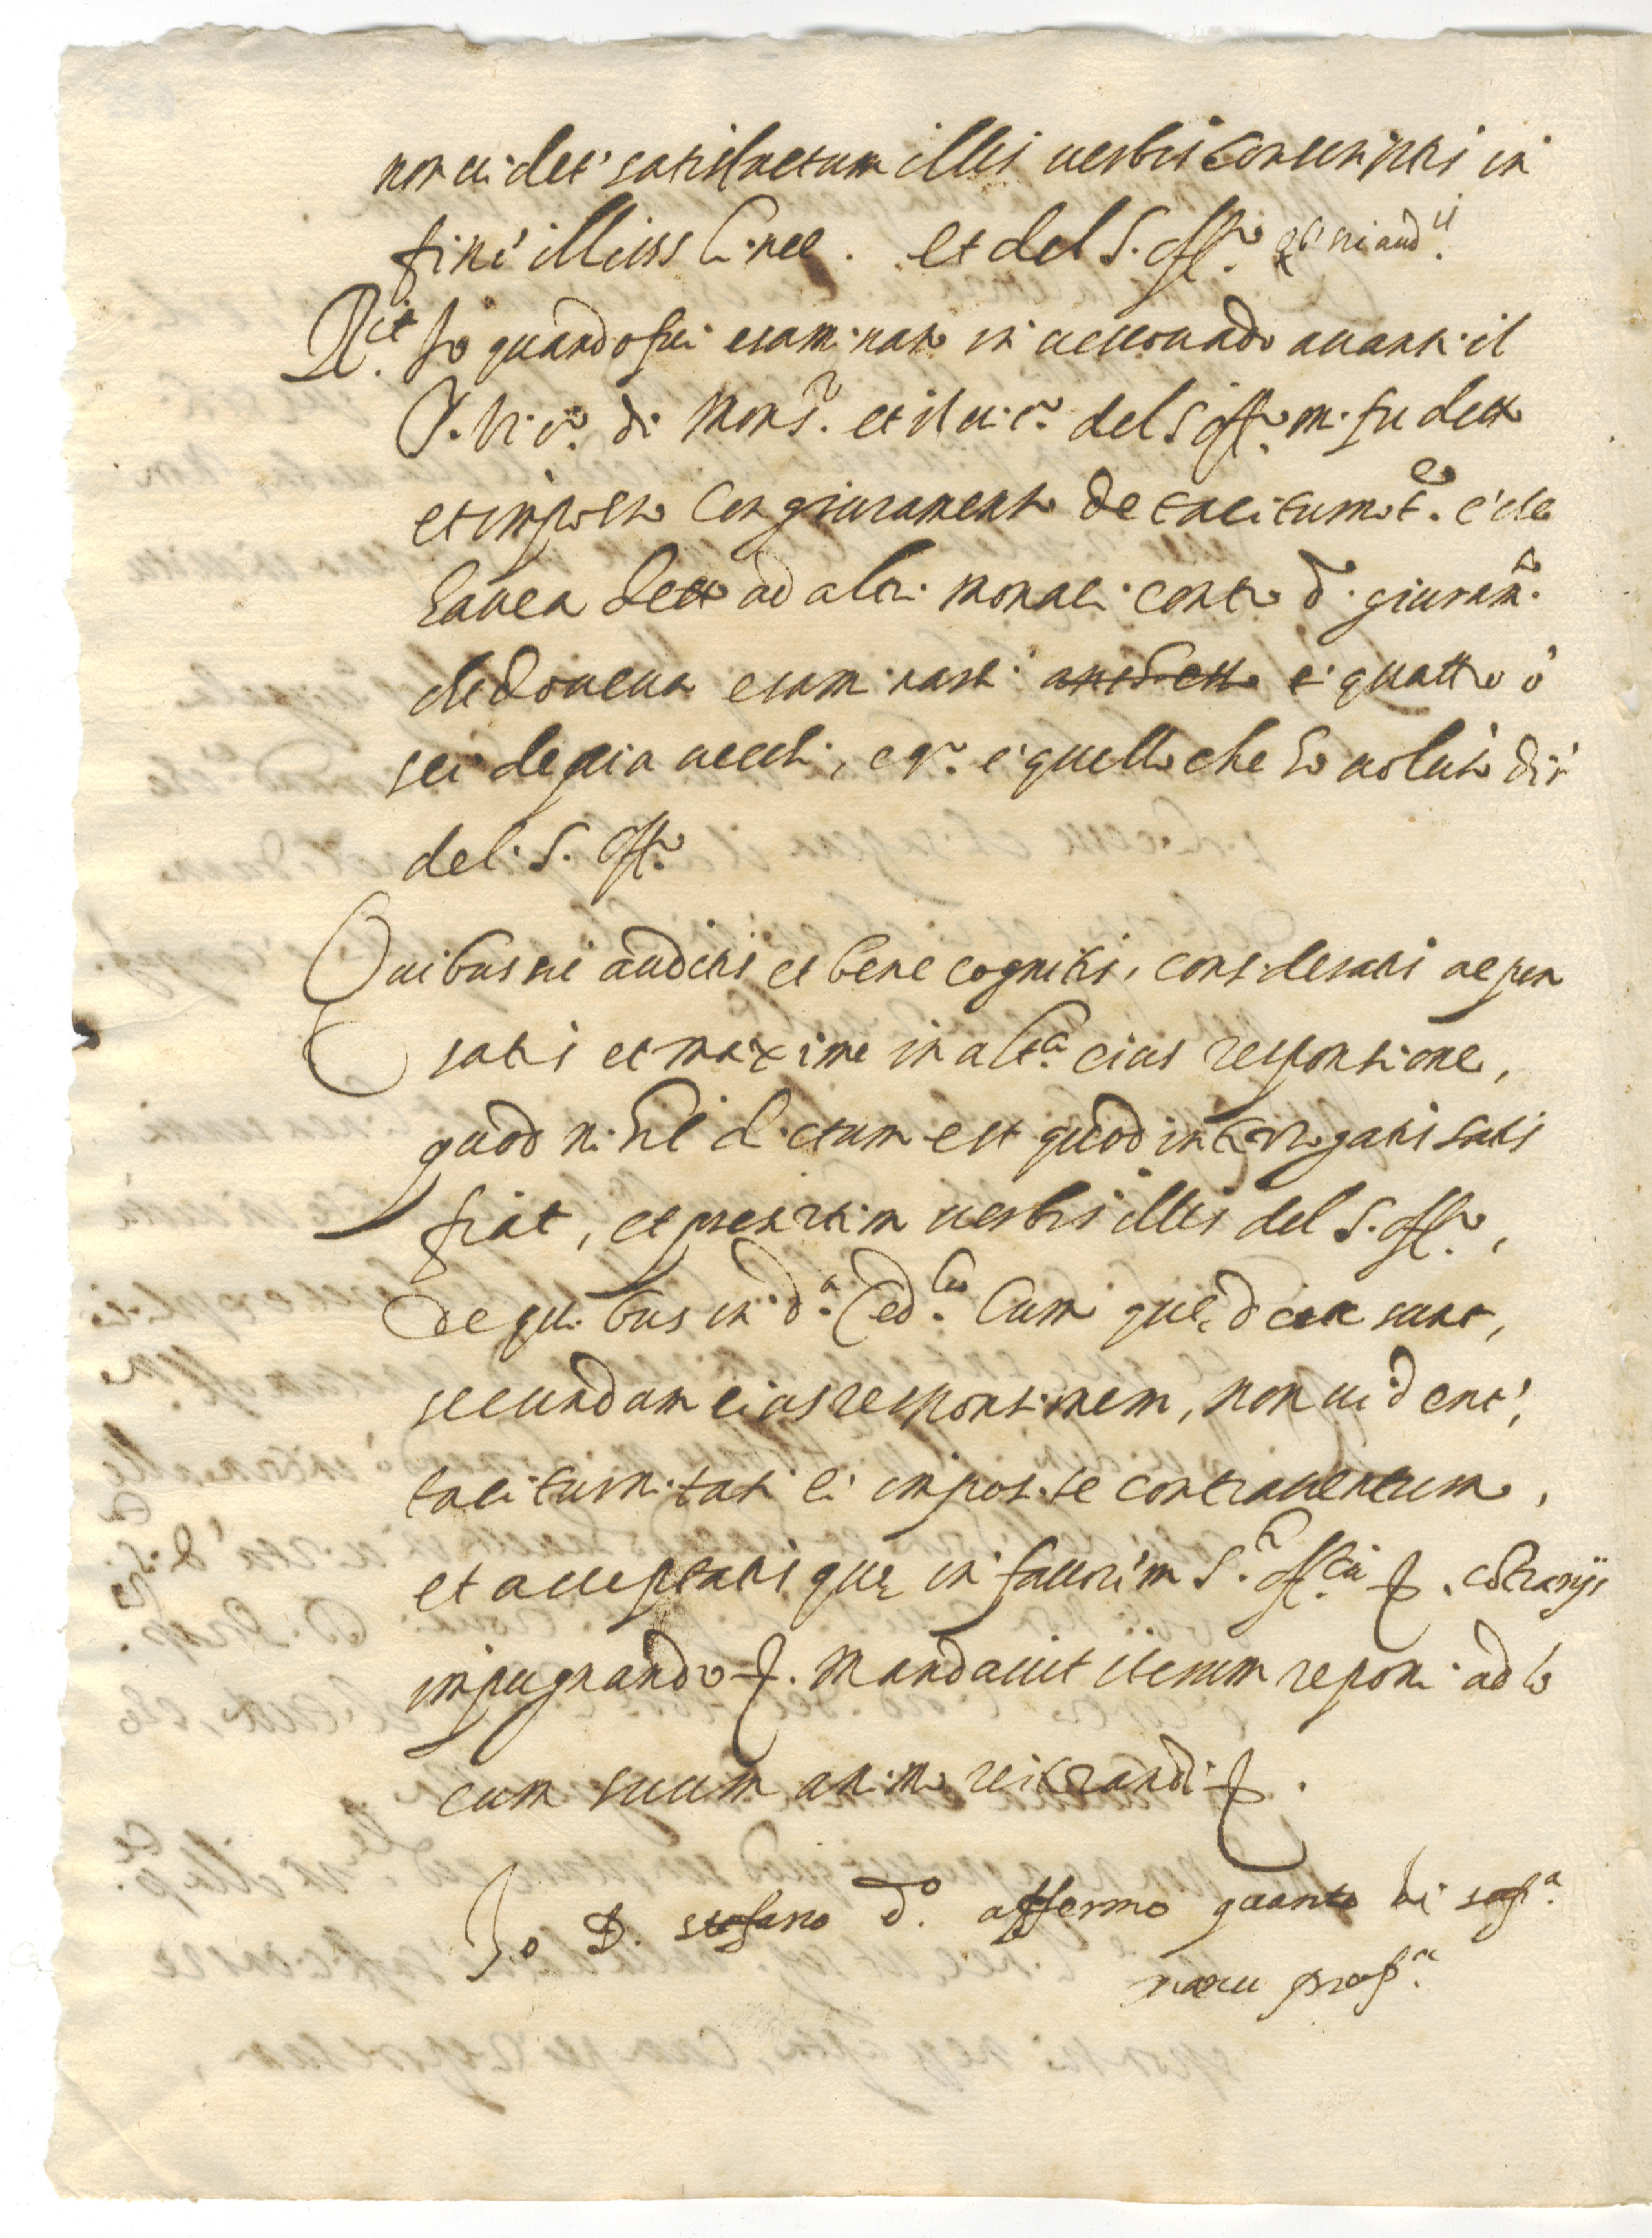 non uidet' satisfactum illis uerbis conscriptis in
fine illius linee. et del S. Off.o
R.it Io quando fui esaminato in uescouado auanti il
S. Vic.o di Mons.r et il uic.o del S Off.o mi fu detto
et imposto con giuramento de taciturnit.e e che
hauea detto ad altri monaci contro d.o giuram.to
che doueua esaminarsi e quattro ò
sei de più uecchi, e q.o è quello che ho uoluto dir
del S. Off.o
Quibus sic auditis et bene cognitis, consideratis ac pen
satis et maxime in alt.a eius responsione,
quod nihil dictum est quod interrogatis satis
fiat, et presertim uerbis illis del S. Off.o,
de quibus in d.a ced.la Cum que dicta sunt,
secundum eius responsionem, non uident',
taciturnitati ei imposite contrauentum,
et acceptatis que in fauorem S.ti Off.cii &. cotrarijs
impugnando &. Mandauit iterum reponi ad lo
cum suum animo reiterandi &.
Io D. stefano d.o affermo quanto di sop.a
manu prop.a